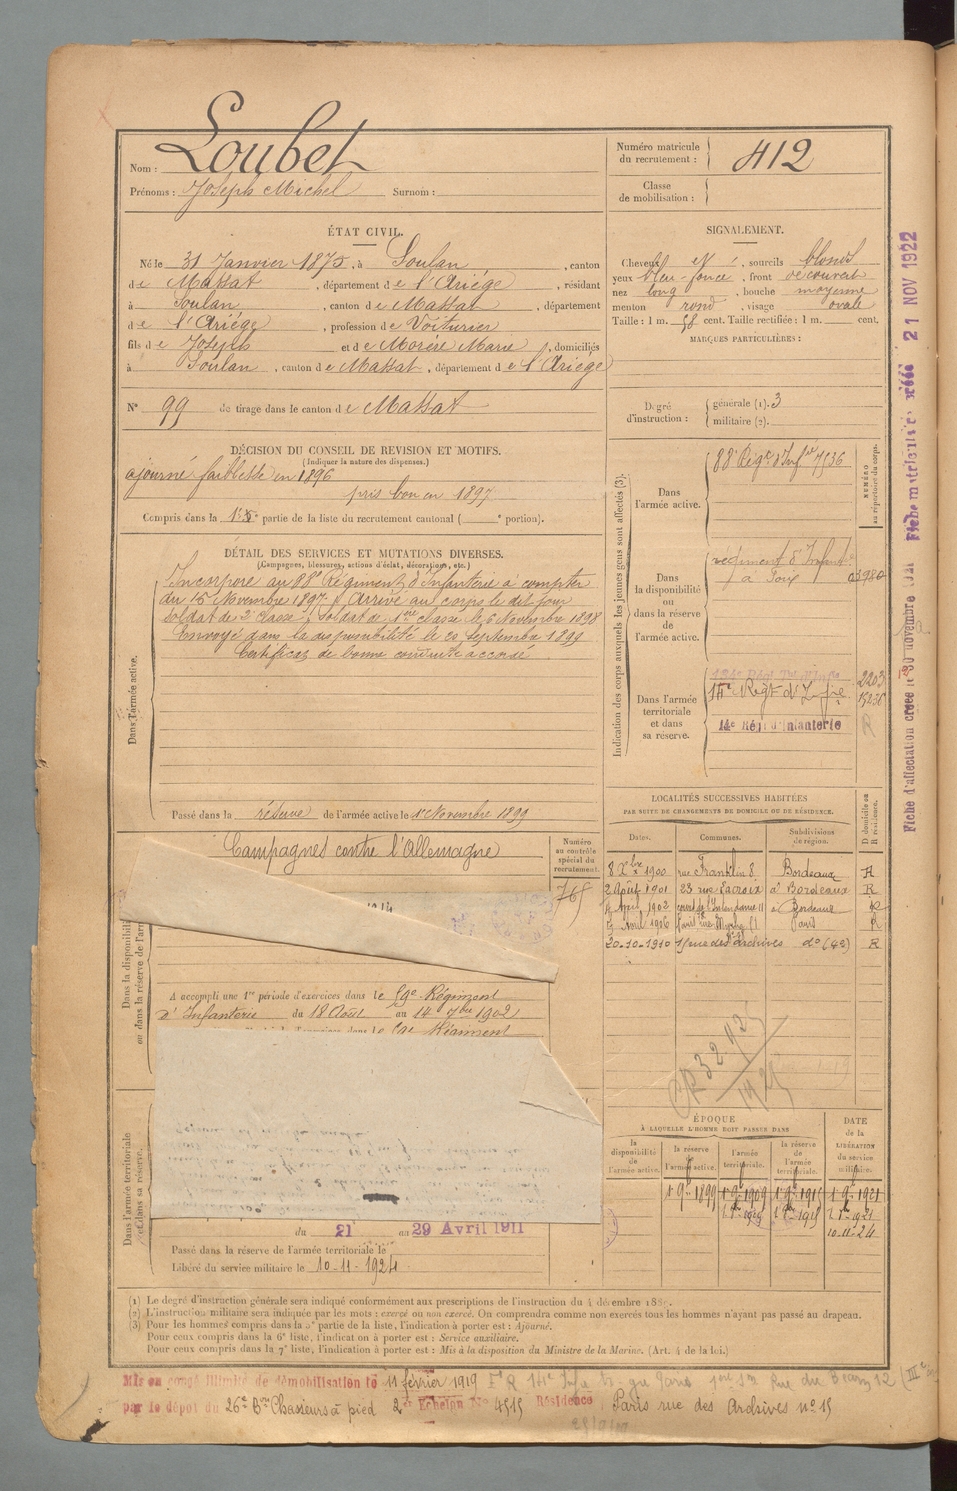 Nom : Loubet
Prénoms : Joseph Michel Surnom :
Numéro matricule du recrutement : 412
Classe de mobilisation :
ÉTAT CIVIL.
Né le 31 Janvier 1875, à Soulan, canton
de Massat, département de l'Ariége, résidant
à Soulan, canton de Massat, département
de l'Ariége, profession de Voiturier
fils de Joseph et de Morère Marie, domiciliés
à Soulan, canton de Massat, département de l'Ariége
N° 99 de tirage dans le canton de Massat
SIGNALEMENT.
Cheveux, sourcils blonds
yeux bleu-foncé, front découvert
nez long, bouche moyenne
menton rond, visage ovale
Taille : 1 m. 58 cent. Taille rectifiée : 1 m. cent.
MARQUES PARTICULIÈRES :
Degré d'instruction : générale (1). 3
militaire (2).
DÉCISION DU CONSEIL DE REVISION ET MOTIFS.
(Indiquer la nature des dispenses.)
ajourné faiblesse en 1896
pris bon en 1897
Compris dans la 1re partie de la liste du recrutement cantonal ( e portion).
DÉTAIL DES SERVICES ET MUTATIONS DIVERSES.
(Campagnes, blessures, actions d'éclat, décorations, etc.)
Dans l'armée active.
Incorporé au 88e Régiment d'Infanterie à compter
du 15 Novembre 1897. Arrivé au corps le dit jour
soldat de 2e classe, soldat de 1re classe le 6 Novembre 1898
Envoyé dans la disponibilité le 20 septembre 1899
Certificat de bonne conduite accordé
Passé dans la réserve de l'armée active le 1 Novembre 1899
Indication des corps auxquels les jeunes gens sont affectés (3).
NUMÉRO au répertoire du corps.
Dans l'armée active.
88e Régt d'Infie 7536
Dans la disponibilité ou dans la réserve de l'armée active.
régiment d'Infante
à Foix
Dans l'armée territoriale et dans sa réserve.
2203
14e Régt d'Infie 15236
14e Rég d'Infanterie R
Fiche d'affectation créée le 30 novembre
Fiche matriculaire créée 21 NOV 1922
LOCALITÉS SUCCESSIVES HABITÉES
PAR SUITE DE CHANGEMENTS DE DOMICILE OU DE RÉSIDENCE.
D domicile ou R résidence.
Dates. Communes. Subdivisions de région.
8 Xbre 1900 rue Franklin 8 Bordeaux R
2 Août 1901 23 rue Lacroix à Bordeaux R
Avril 1902 cours de l'Intendance 11 à Bordeaux R
Avril 1906 Paris rue Paris R
20-10-1910 15 rue des Archives do (4e) R
Campagnes contre l'Allemagne
Numéro au contrôle spécial du recrutement.
765
Dans la disponibilité ou dans la réserve de l'armée
A accompli une 1re période d'exercices dans le 59e Régiment
d'Infanterie du 18 Août au 14 7bre 1902
Régiment
CR 3292
1925
Dans l'armée territoriale et dans sa réserve.
du 21 au 29 Avril 1911
Passé dans la réserve de l'armée territoriale le
Libéré du service militaire le 10-11-1924
ÉPOQUE
À LAQUELLE L'HOMME DOIT PASSER DANS
DATE de la LIBÉRATION du service militaire.
la disponibilité de l'armée active. la réserve de l'armée active. l'armée territoriale. la réserve de l'armée territoriale.
1 9bre 1899 1 9bre 1909 1 9bre 1915 1 9bre 1921
10-11-24
(1) Le degré d'instruction générale sera indiqué conformément aux prescriptions de l'instruction du 4 décembre 188
(2) L'instruction militaire sera indiquée par les mots : exercé ou non exercé. On comprendra comme non exercés tous les hommes n'ayant pas passé au drapeau.
(3) Pour les hommes compris dans la 5e partie de la liste, l'indication à porter est : Ajourné.
Pour ceux compris dans la 6e liste, l'indication à porter est : Service auxiliaire.
Pour ceux compris dans la 7e liste, l'indication à porter est : Mis à la disposition du Ministre de la Marine. (Art. 4 de la loi.)
Mis en congé illimité de démobilisation le 11 février 1919
par le dépôt du 26e Bon Chasseurs à pied 2e Echelon No 4515 Résidence Paris rue des Archives no 15